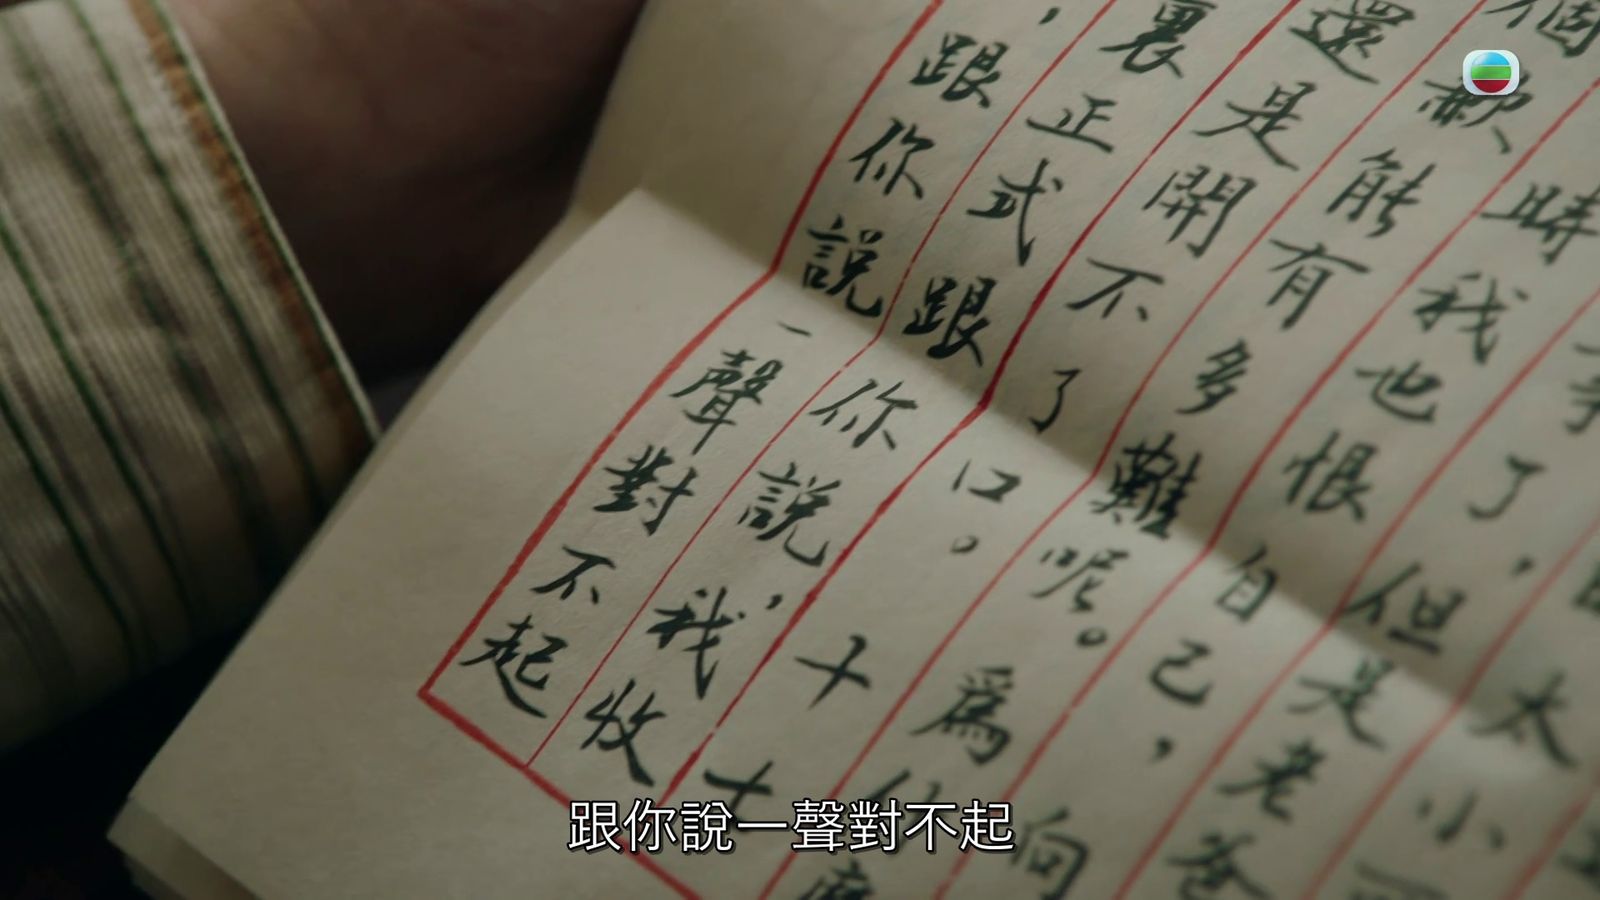 太小
了，但是老爸
時我也恨自己，向
個歉能有多難呢。為什麼
還是開不了口。十
裏正式跟你說，我收
，跟你說一聲對不起
跟你說一聲對不起